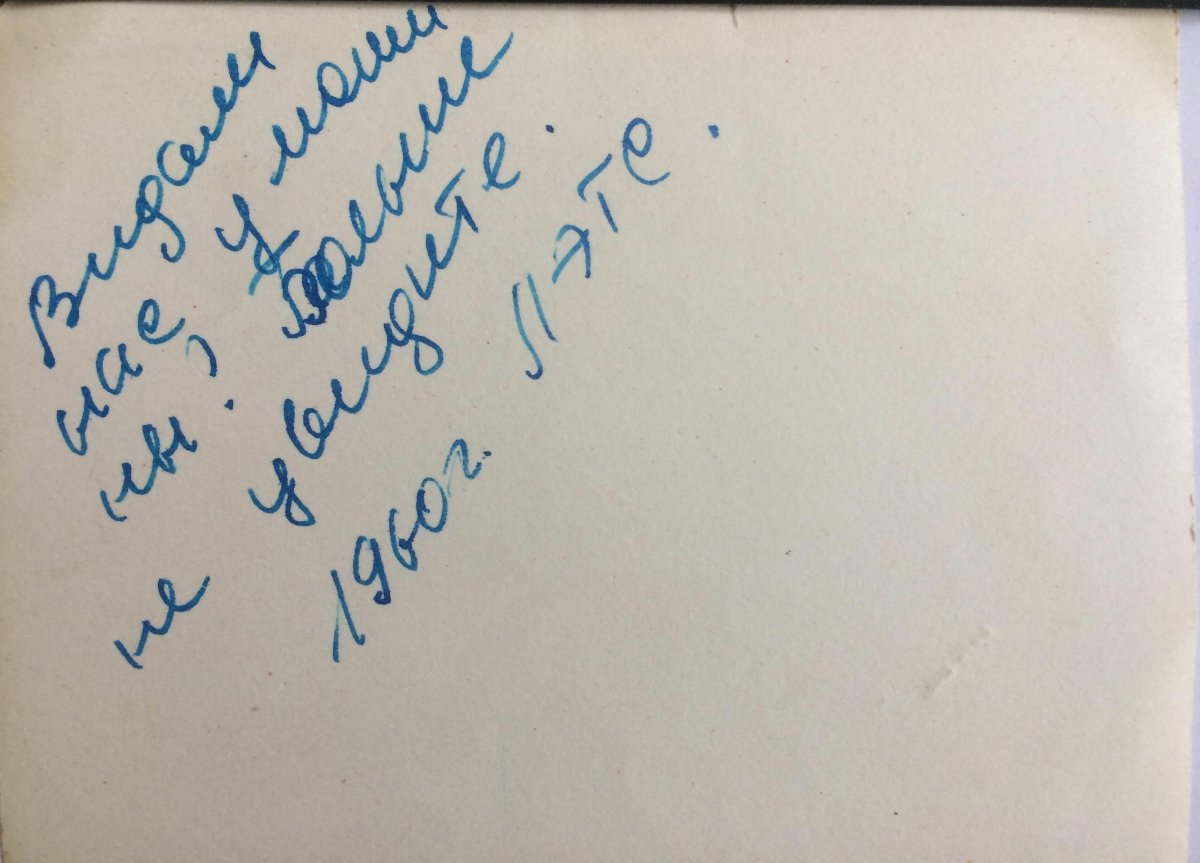 Видали
нас у маши
ны, больше
не увидите.
1960г. ЛЭТС.